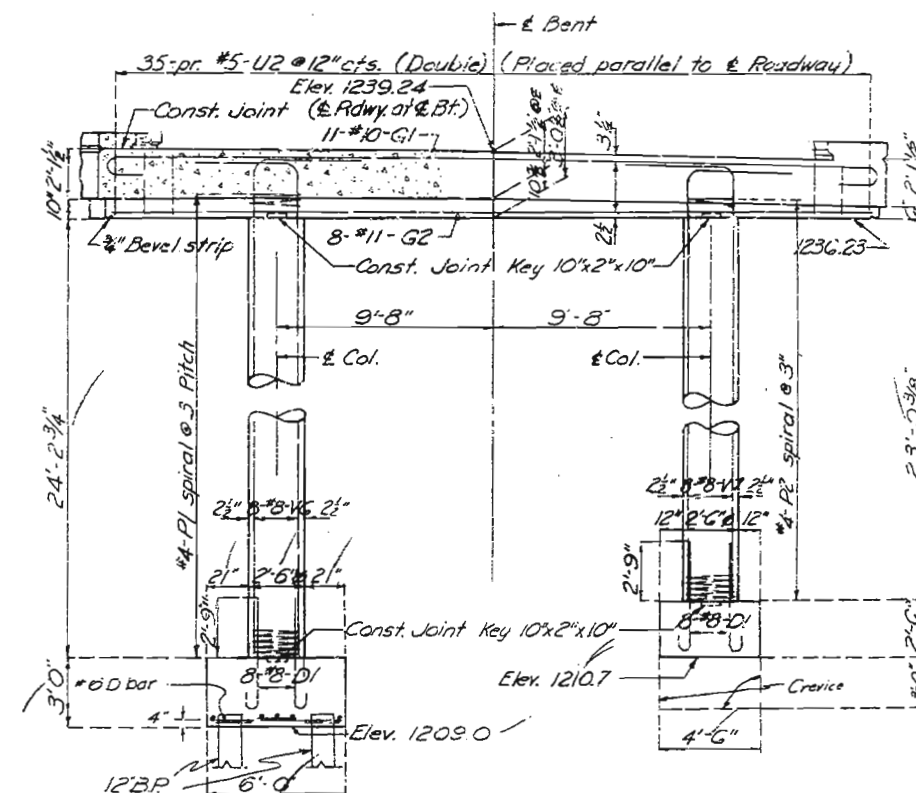 ℄ Bent
35-pr. #5-U2 @ 12" cts. (Double) (Placed parallel to ℄ Roadway)
Elev. 1239.24
Const. Joint (℄ Rdwy. at ℄ Bt.)
11-#10-G1
3¼"
10" 2'-1½"
2'-1½"
2½"
8-#11-G2
¾" Bevel strip
Const. Joint Key 10"x2"x10"
1236.23
9'-8"
9'-8"
℄ Col.
℄ Col.
24'-2¾"
#4-P1 spiral @ 3 Pitch
#4-P2 spiral @ 3"
2½" 8-#8-V6 2½"
2½" 8-#8-V7 2½"
12" 2'-6"ø 12"
21" 2'-6"ø 21"
2'-9"
2'-9"
Const. Joint Key 10"x2"x10"
8-#8-D1
8-#8-D1
2'-6"
3'0"
#6 D bar
4"
Elev. 1210.7
Crevice
Elev. 1209.0
4'-6"
12"B.P.
6'-0"